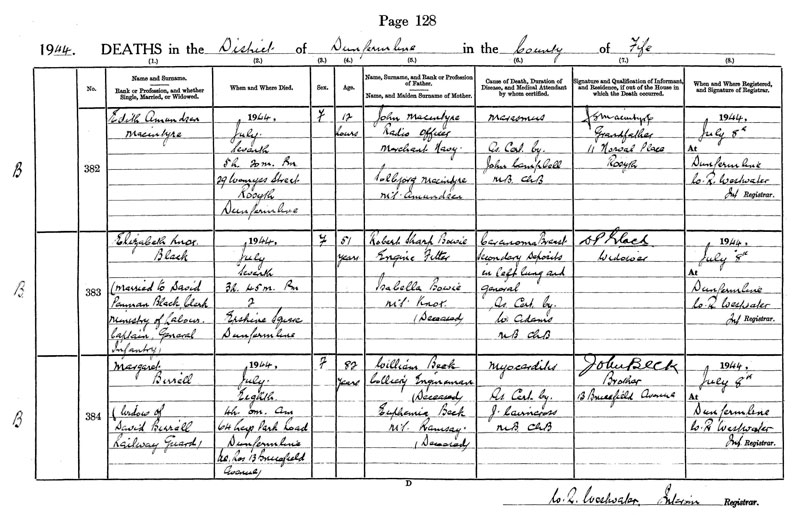 Page 128
1944. DEATHS in the District of Dunfermline in the County of Fife
(1.) (2.) (3.) (4.) (5.) (6.) (7.) (8.)
No.
Name and Surname.
Rank or Profession, and whether Single, Married, or Widowed.
When and Where Died.
Sex.
Age.
Name, Surname, and Rank or Profession of Father.
Name, and Maiden Surname of Mother.
Cause of Death, Duration of Disease, and Medical Attendant by whom certified.
Signature and Qualification of Informant, and Residence, if out of the House in which the Death occurred.
When and Where Registered, and Signature of Registrar.
B
382
Edith Amundsen
Macintyre
1944.
July.
Seventh
5h. 20m. Pm
29 Wemyss Street
Rosyth
Dunfermline
F
12
hours
John Macintyre
Radio Officer
Merchant Navy.
Macintyre
m/s. Amundsen
As Cert. by
John Campbell
M.B. Ch.B
Macintyre
Grandfather
11 Norval Place
Rosyth
1944.
July 8th
At
Dunfermline
W. R. Westwater
Int Registrar.
B
383
Elizabeth Knox
Black
(Married to David
Penman Black Clerk
Ministry of Labour.
Captain. General
Infantry)
1944.
July
Seventh
3h. 45m. Pm
Erskine Square
Dunfermline
F
51
years
Robert Sharp Bowie
Engine Fitter
Isabella Bowie
m/s. Knox.
(Deceased)
Carcinoma Breast
Secondary Deposits
in left lung and
general
As Cert. by
W Adams
M.B. Ch.B
D P Black
Widower
1944.
July 8th
At
Dunfermline
W. R. Westwater
Int Registrar.
B
384
Margaret
Birrell
(Widow of
David Birrell
Railway Guard)
1944.
July.
Eighth
4h. 0m. Am
Dunfermline
13 Brucefield
Avenue)
F
82
years
William Beck
Colliery Engineman
(Deceased)
Euphemia Beck
m/s. Ramsay.
(Deceased)
Myocarditis
As Cert. by
J. Cairncross
M.B. Ch.B
John Beck
Brother
13 Brucefield Avenue
1944.
July 8th
At
Dunfermline
W. R. Westwater
Int Registrar.
D
W. R. Westwater, Interim Registrar.